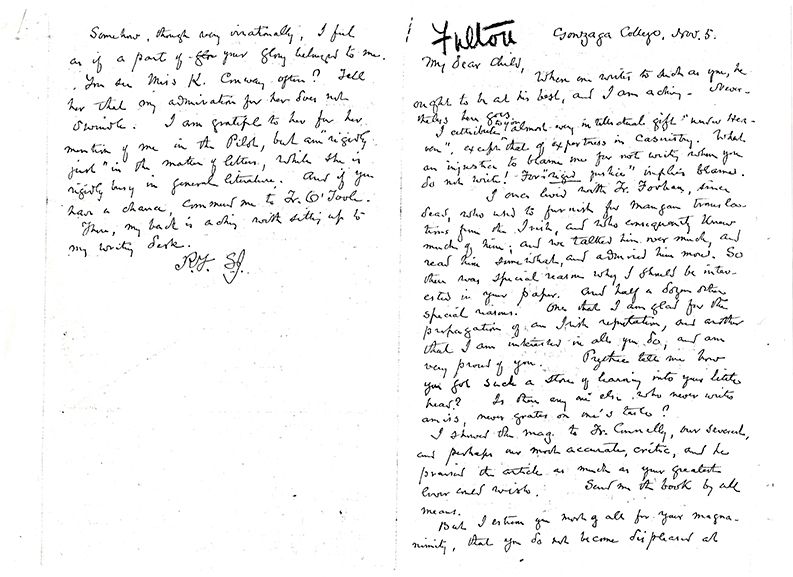 Fulton
Gonzaga College, Nov. 5.
My dear Child,
When one writes to such as you, he
ought to be at his best, and I am aching. Never-
theless here goes.
I attribute to you "almost every intellectual gift "under Hea-
ven", except that of expertness in Casuistry. What
an injustice to blame me for not writing when you
do not write! For "rigid justice" implies blame.
I once lived with Fr. Forhan, since
dead, who used to furnish for Mangan transla-
tions from the Irish, and who consequently knew
much of him; and we talked him over much, and
read him somewhat, and admired him more. So
there was special reason why I should be inter-
ested in your paper. And half a dozen other
special reasons. One that I am glad for the
propagation of an Irish reputation, and another
that I am interested in all you do, and am
very proud of you. Prythee tell me how
you got such a store of learning into your little
head? Is there any one else who never writes
amiss, never grates on one's taste?
I showed the mag. to Fr. Connelly, our severest,
and perhaps our most accurate, critic, and he
praised the article as much as your greatest
lover could wish. Send me the book by all
means.
But I esteem you most of all for your magna-
nimity, that you do not become displeased at
Somehow, though very irrationally, I feel
as if a part of your glory belonged to me.
You see Miss K. Conway often? Tell
her that my admiration for her does not
dwindle. I am grateful to her for her
mention of me in the Pilot, but am "rigidly
just" in the matter of letters, while she is
rigidly busy in general literature. And if you
have a chance, commend me to Fr. O'Toole.
There, my back is aching with sitting up to
my writing desk.
R.F. S.J.